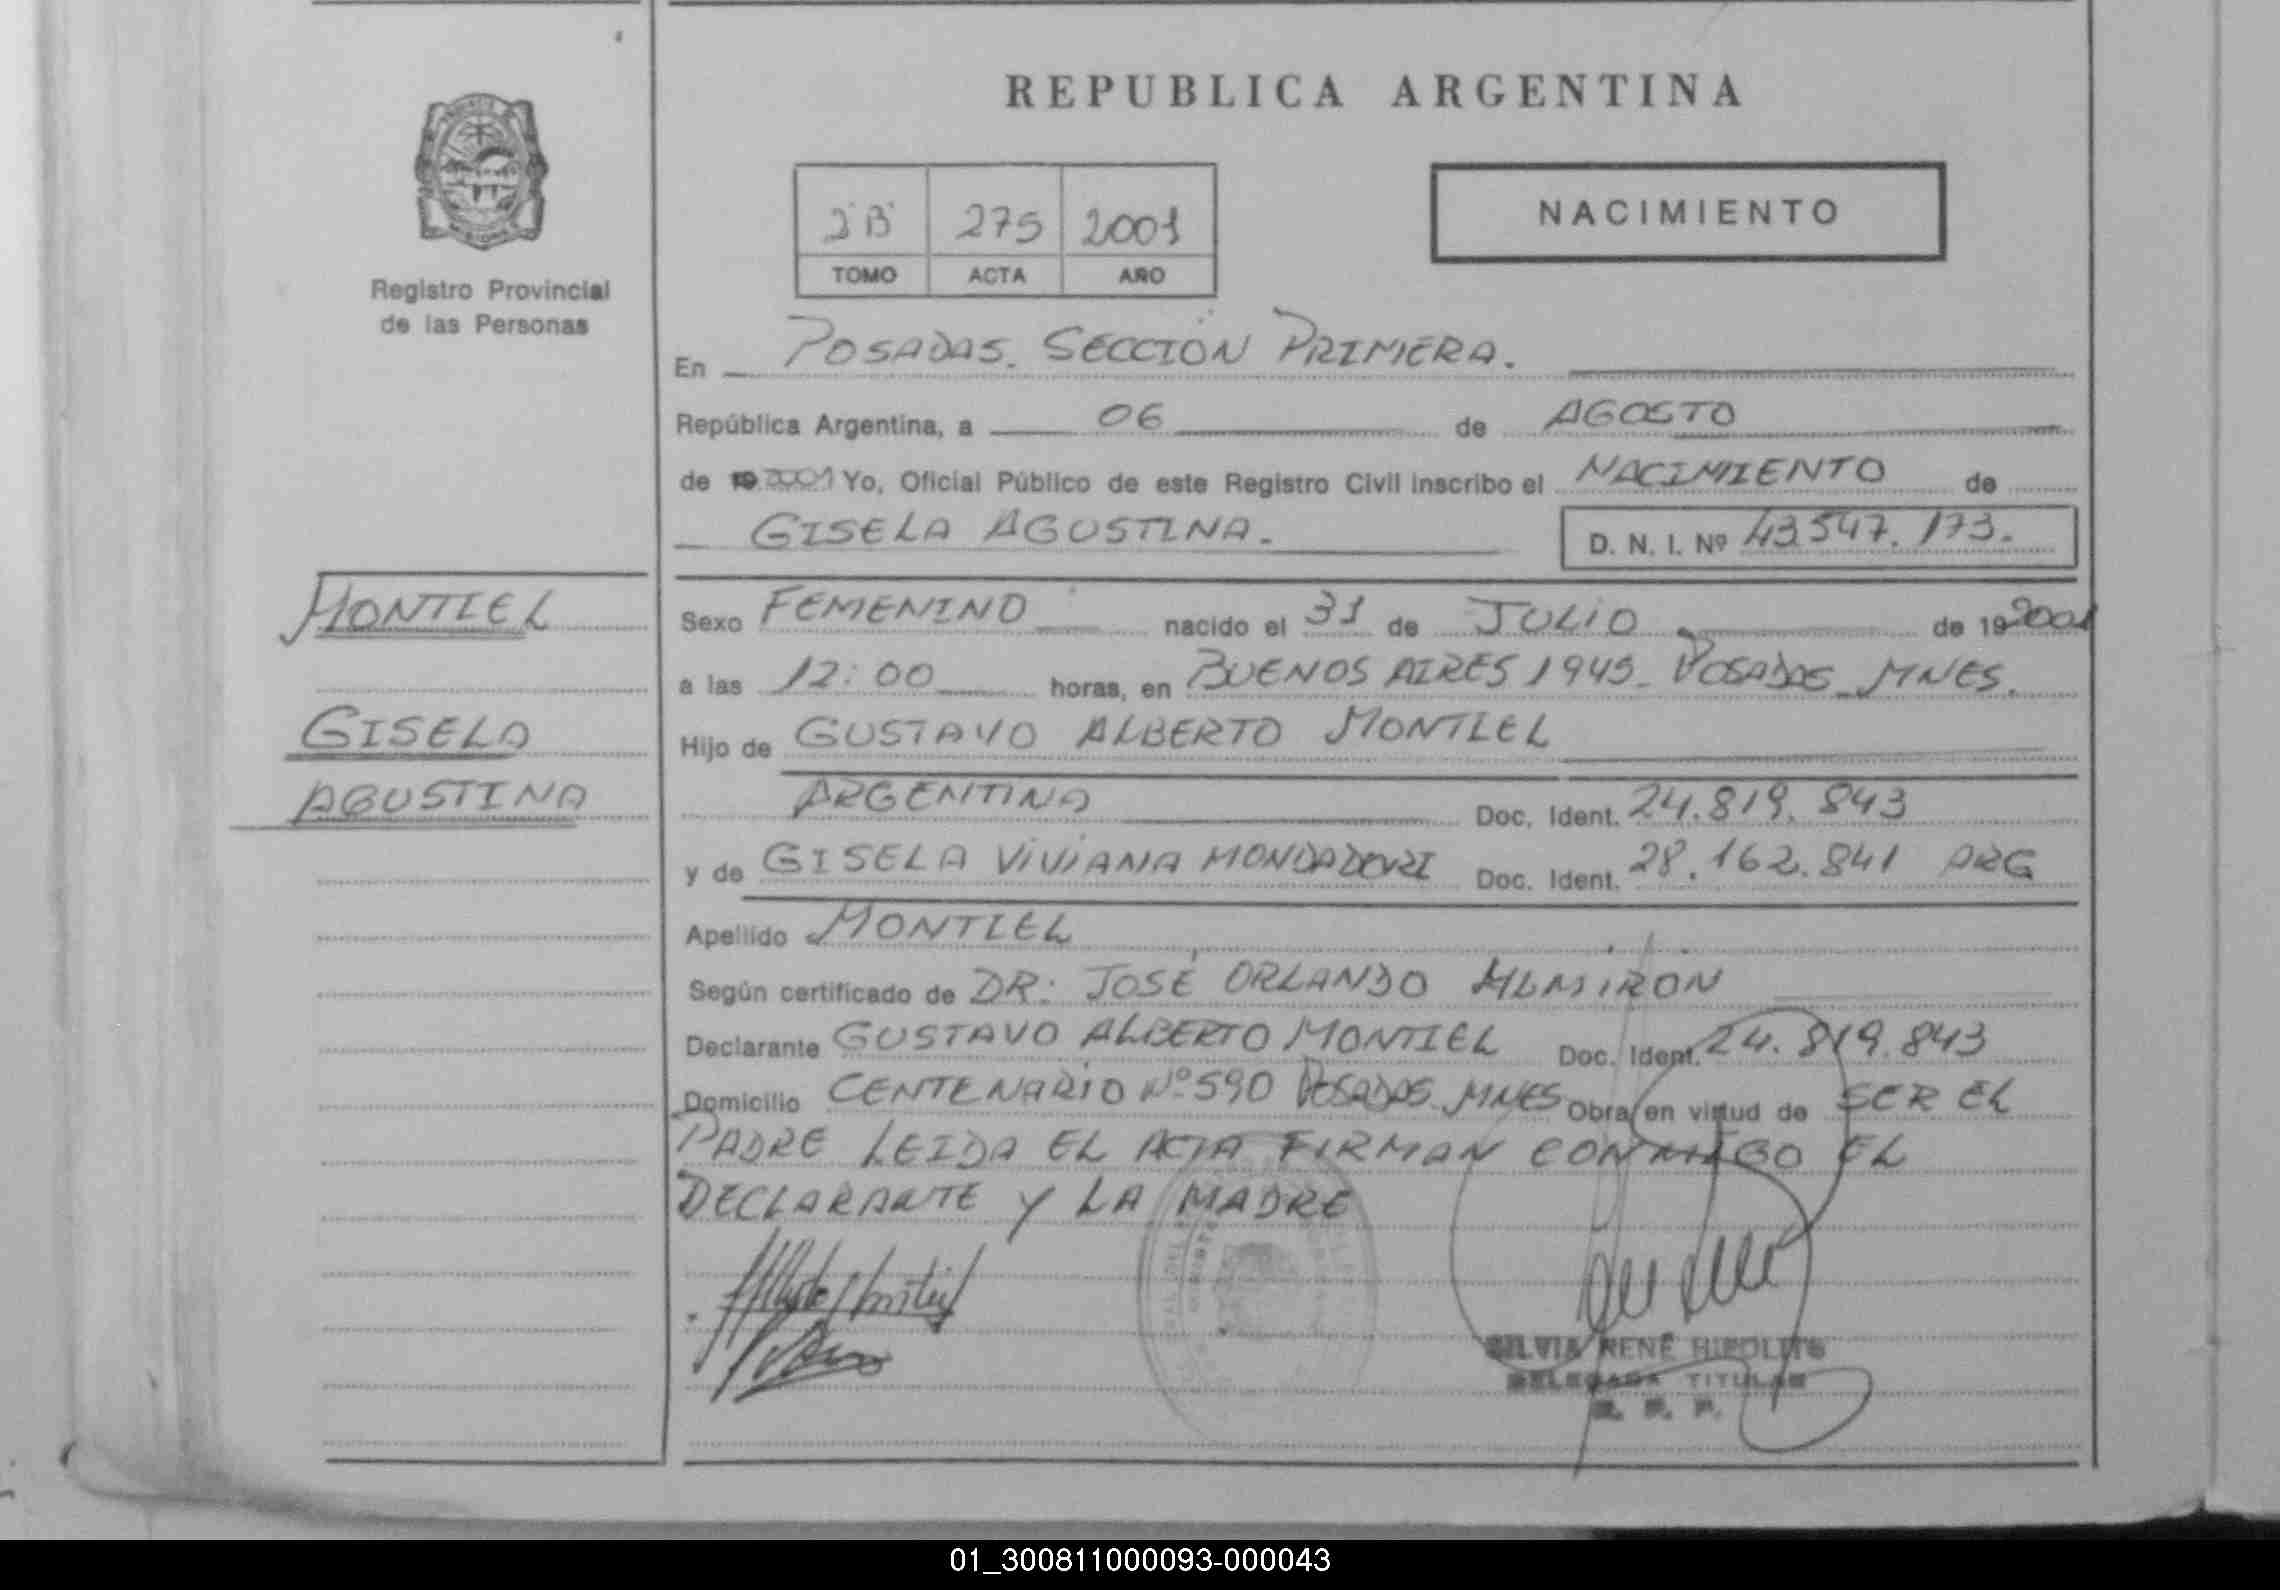 REPUBLICA ARGENTINA
Registro Provincial
de las Personas
2"B" 275 2001
TOMO ACTA AÑO
NACIMIENTO
En POSADAS. SECCIÓN PRIMERA.
República Argentina, a 06 de AGOSTO
de 19 2001 Yo, Oficial Público de este Registro Civil inscribo el NACIMIENTO de
GISELA AGUSTINA. D. N. I. Nº 43.547.173.
MONTIEL
GISELA
AGUSTINA
Sexo FEMENINO nacido el 31 de JULIO de 19 2001
a las 12:00 horas, en BUENOS AIRES 1945 - POSADAS MNES.
Hijo de GUSTAVO ALBERTO MONTIEL
ARGENTINO Doc. Ident. 24.819.843
y de GISELA VIVIANA MONDADORI Doc. Ident. 28.162.841 ARG
Apellido MONTIEL
Según certificado de DR: JOSÉ ORLANDO ALMIRON
Declarante GUSTAVO ALBERTO MONTIEL Doc. Ident. 24.819.843
Domicilio CENTENARIO Nº 590 POSADAS MNES Obra en virtud de SER EL
PADRE LEIDA EL ACTA FIRMAN CONMIGO EL
DECLARANTE Y LA MADRE
SILVIA RENÉ HIPOLITO
DELEGADA TITULAR
R. P. P.
01_300811000093-000043